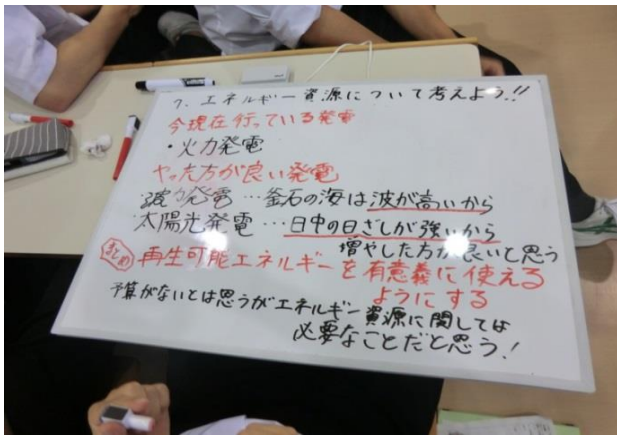 7. エネルギー資源について考えよう!!
今現在行っている発電
・火力発電
やった方が良い発電
波力発電…釜石の海は波が高いから
太陽光発電…日中の日ざしが強いから
増やした方が良いと思う
まとめ 再生可能エネルギーを有意義に使える
ようにする
予算がないとは思うがエネルギー資源に関しては
必要なことだと思う!